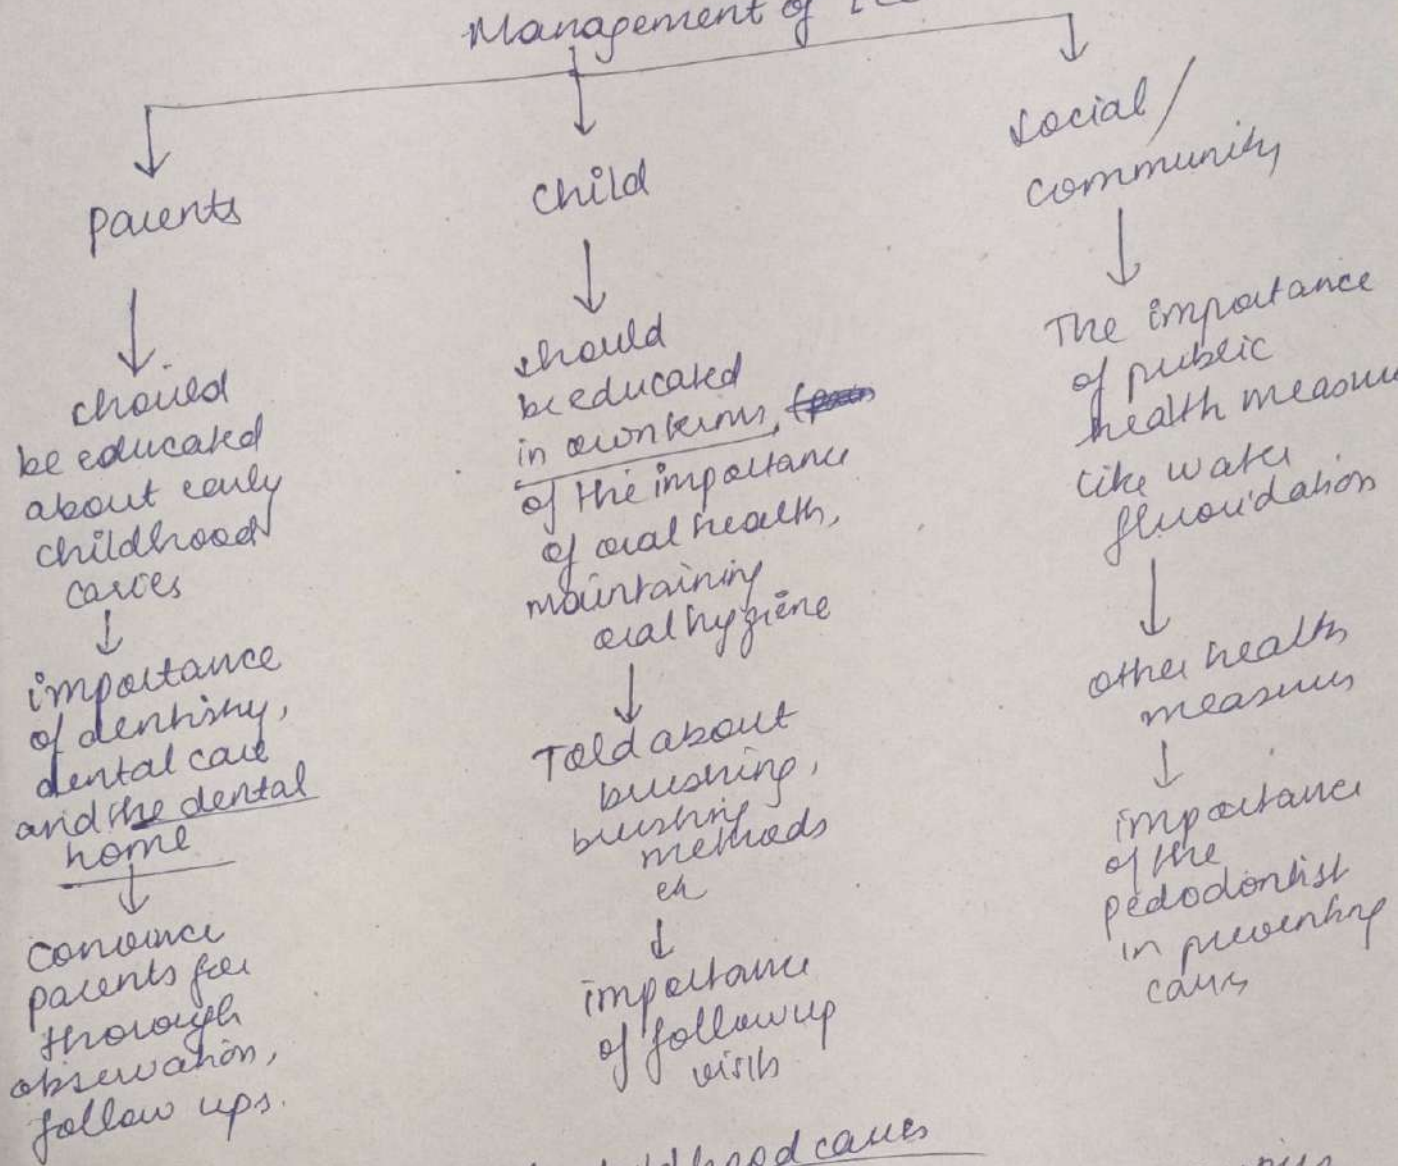 Management of
Parents
should
be educated
about early
childhood
caries
importance
of dentistry,
dental care
and the dental
home
convince
parents for
thorough
observation,
follow ups.
child
should
be educated
in own terms,
of the importance
of oral health,
maintaining
oral hygiene
Told about
brushing,
brushing
methods
etc
importance
of followup
visits
social/
community
The importance
of public
health measures
like water
fluoridation
other health
measures
importance
of the
pedodontist
in preventing
caries
childhood caries